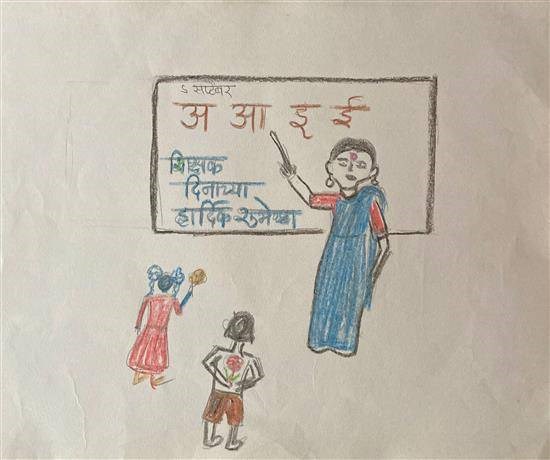 ५ सप्टेंबर
अ आ इ ई
शिक्षक
दिनाच्या
हार्दिक शुभेच्छा